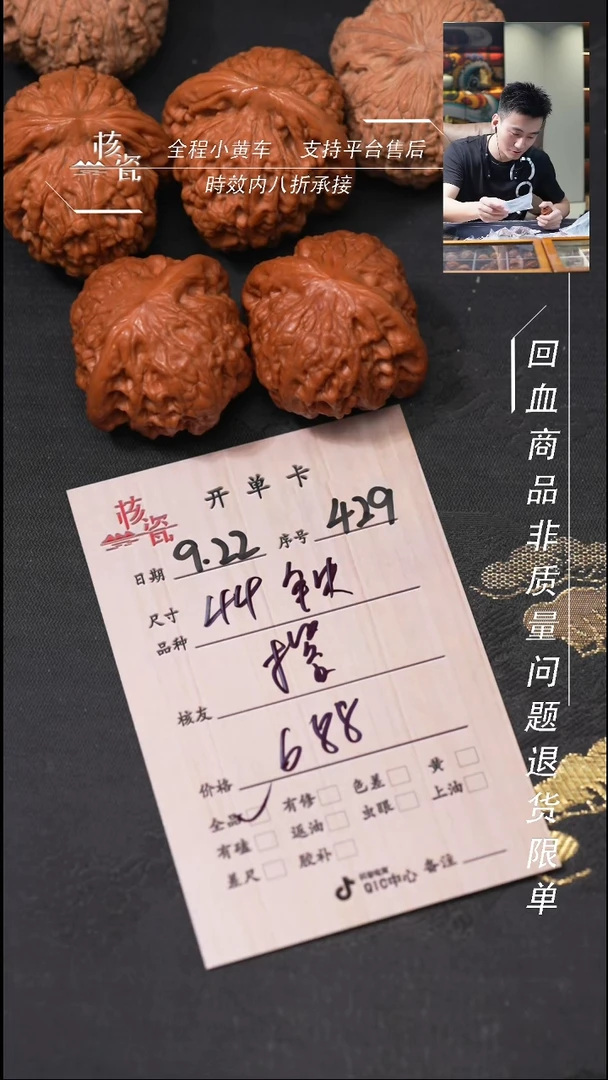 核瓷
全程小黄车 支持平台售后
時效内八折承接
回血商品非质量问题退货限单
核瓷
开单卡
日期 9.22 序号 429
尺寸 44
品种
核友
价格 688
全品 有修 色差 黄
有磕 返油 虫眼 上油
差尺 胶补
QIC中心 备注